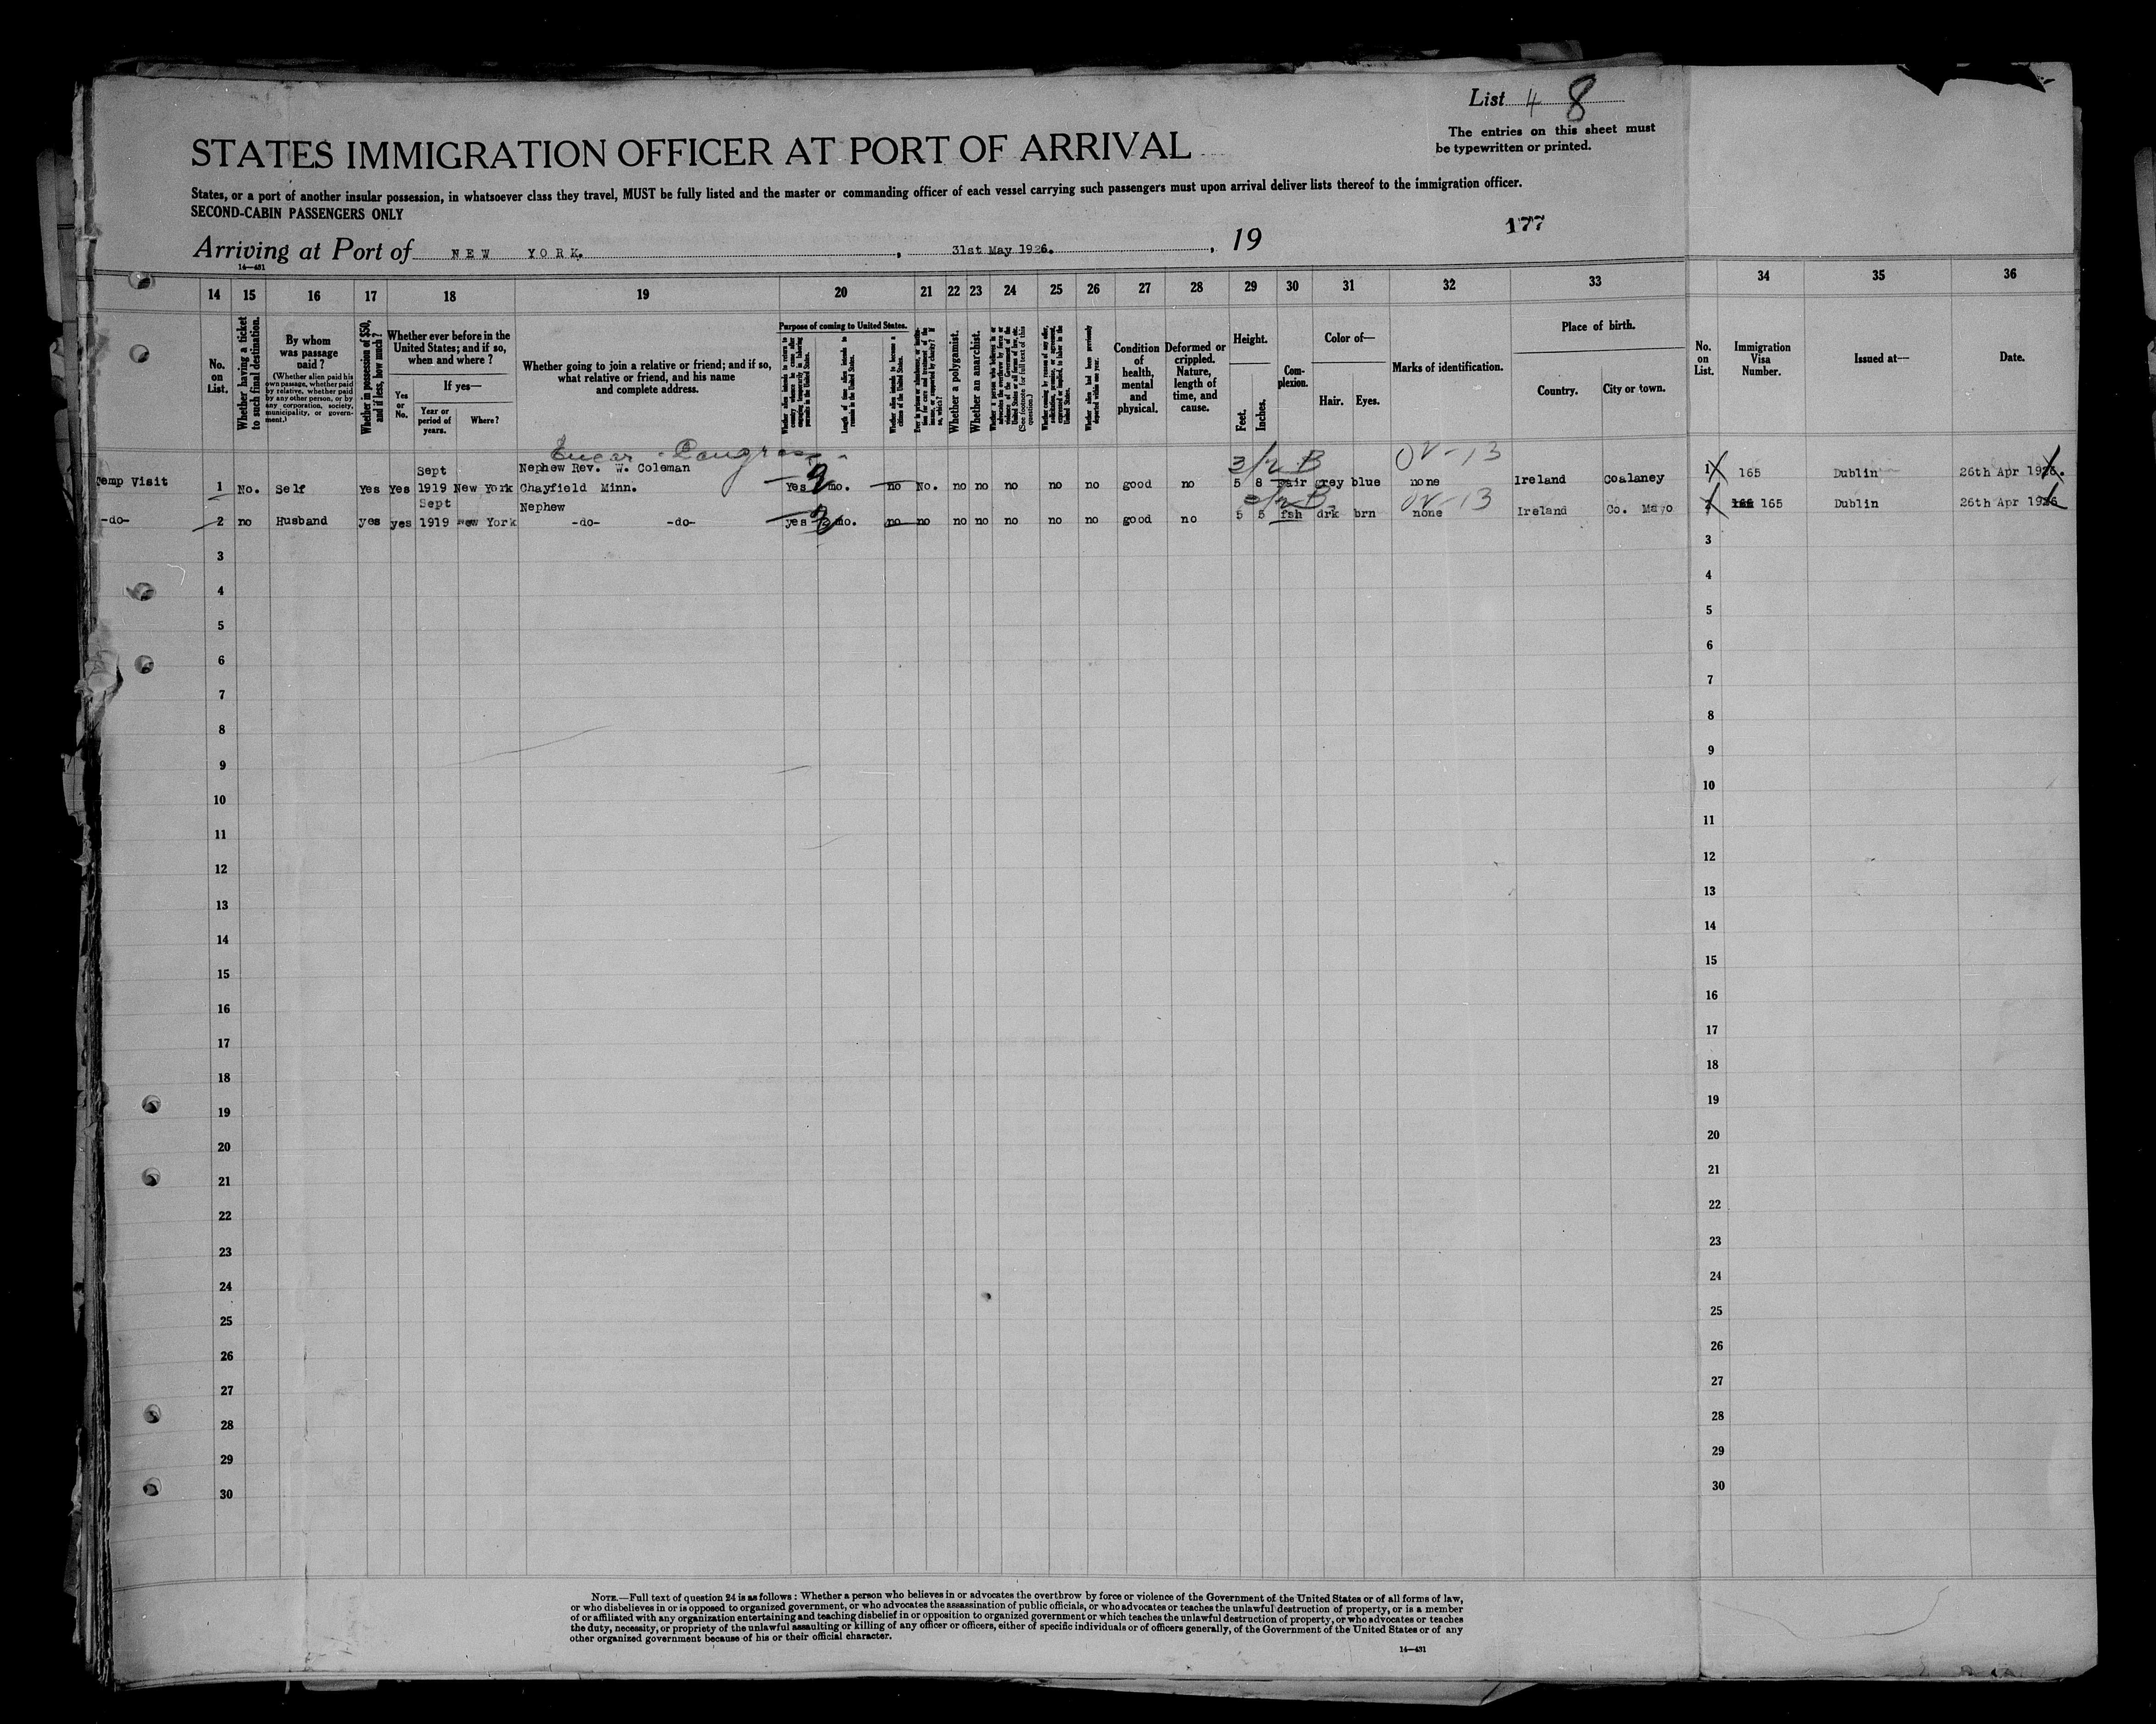 List 4 8
The entries on this sheet must
be typewritten or printed.
STATES IMMIGRATION OFFICER AT PORT OF ARRIVAL
States, or a port of another insular possession, in whatsoever class they travel, MUST be fully listed and the master or commanding officer of each vessel carrying such passengers must upon arrival deliver lists thereof to the immigration officer.
SECOND-CABIN PASSENGERS ONLY
177
Arriving at Port of NEW YORK. , 31st May 1926. , 19
14—431
14 15 16 17 18 19 20 21 22 23 24 25 26 27 28 29 30 31 32 33 34 35 36
No. on List.
Whether having a ticket to such final destination.
By whom was passage paid?
(Whether alien paid his own passage, whether paid by relative, whether paid by any other person, or by any corporation, society, municipality, or government.)
Whether in possession of $50, and if less, how much?
Whether ever before in the United States; and if so, when and where?
Yes or No.
If yes—
Year or period of years.
Where?
Whether going to join a relative or friend; and if so, what relative or friend, and his name and complete address.
Purpose of coming to United States.
Length of time alien intends to remain in the United States.
Whether alien intends to become a citizen of the United States.
Whether a polygamist.
Whether an anarchist.
Whether alien had been previously deported within one year.
Condition of health, mental and physical.
Deformed or crippled. Nature, length of time, and cause.
Height.
Feet. Inches.
Complexion.
Color of—
Hair. Eyes.
Marks of identification.
Place of birth.
Country. City or town.
No. on List.
Immigration Visa Number.
Issued at—
Date.
3/2 B
Sept Nephew Rev. W. Coleman
Temp Visit 1 No. Self Yes Yes 1919 New York Chayfield Minn. Yes 2 mo. no No. no no no no no good no 5 8 fair grey blue none Ireland Coalaney 1 165 Dublin 26th Apr 1926.
Sept Nephew
-do- 2 no Husband yes yes 1919 New York -do- -do- yes mo. no no no no no no no good no 5 5 fsh drk brn none Ireland Co. Mayo 2 165 Dublin 26th Apr 1926
3 3
4 4
5 5
6 6
7 7
8 8
9 9
10 10
11 11
12 12
13 13
14 14
15 15
16 16
17 17
18 18
19 19
20 20
21 21
22 22
23 23
24 24
25 25
26 26
27 27
28 28
29 29
30 30
NOTE.—Full text of question 24 is as follows: Whether a person who believes in or advocates the overthrow by force or violence of the Government of the United States or of all forms of law,
or who disbelieves in or is opposed to organized government, or who advocates the assassination of public officials, or who advocates or teaches the unlawful destruction of property, or is a member
of or affiliated with any organization entertaining and teaching disbelief in or opposition to organized government or which teaches the unlawful destruction of property, or who advocates or teaches
the duty, necessity, or propriety of the unlawful assaulting or killing of any officer or officers, either of specific individuals or of officers generally, of the Government of the United States or of any
other organized government because of his or their official character.
14—431